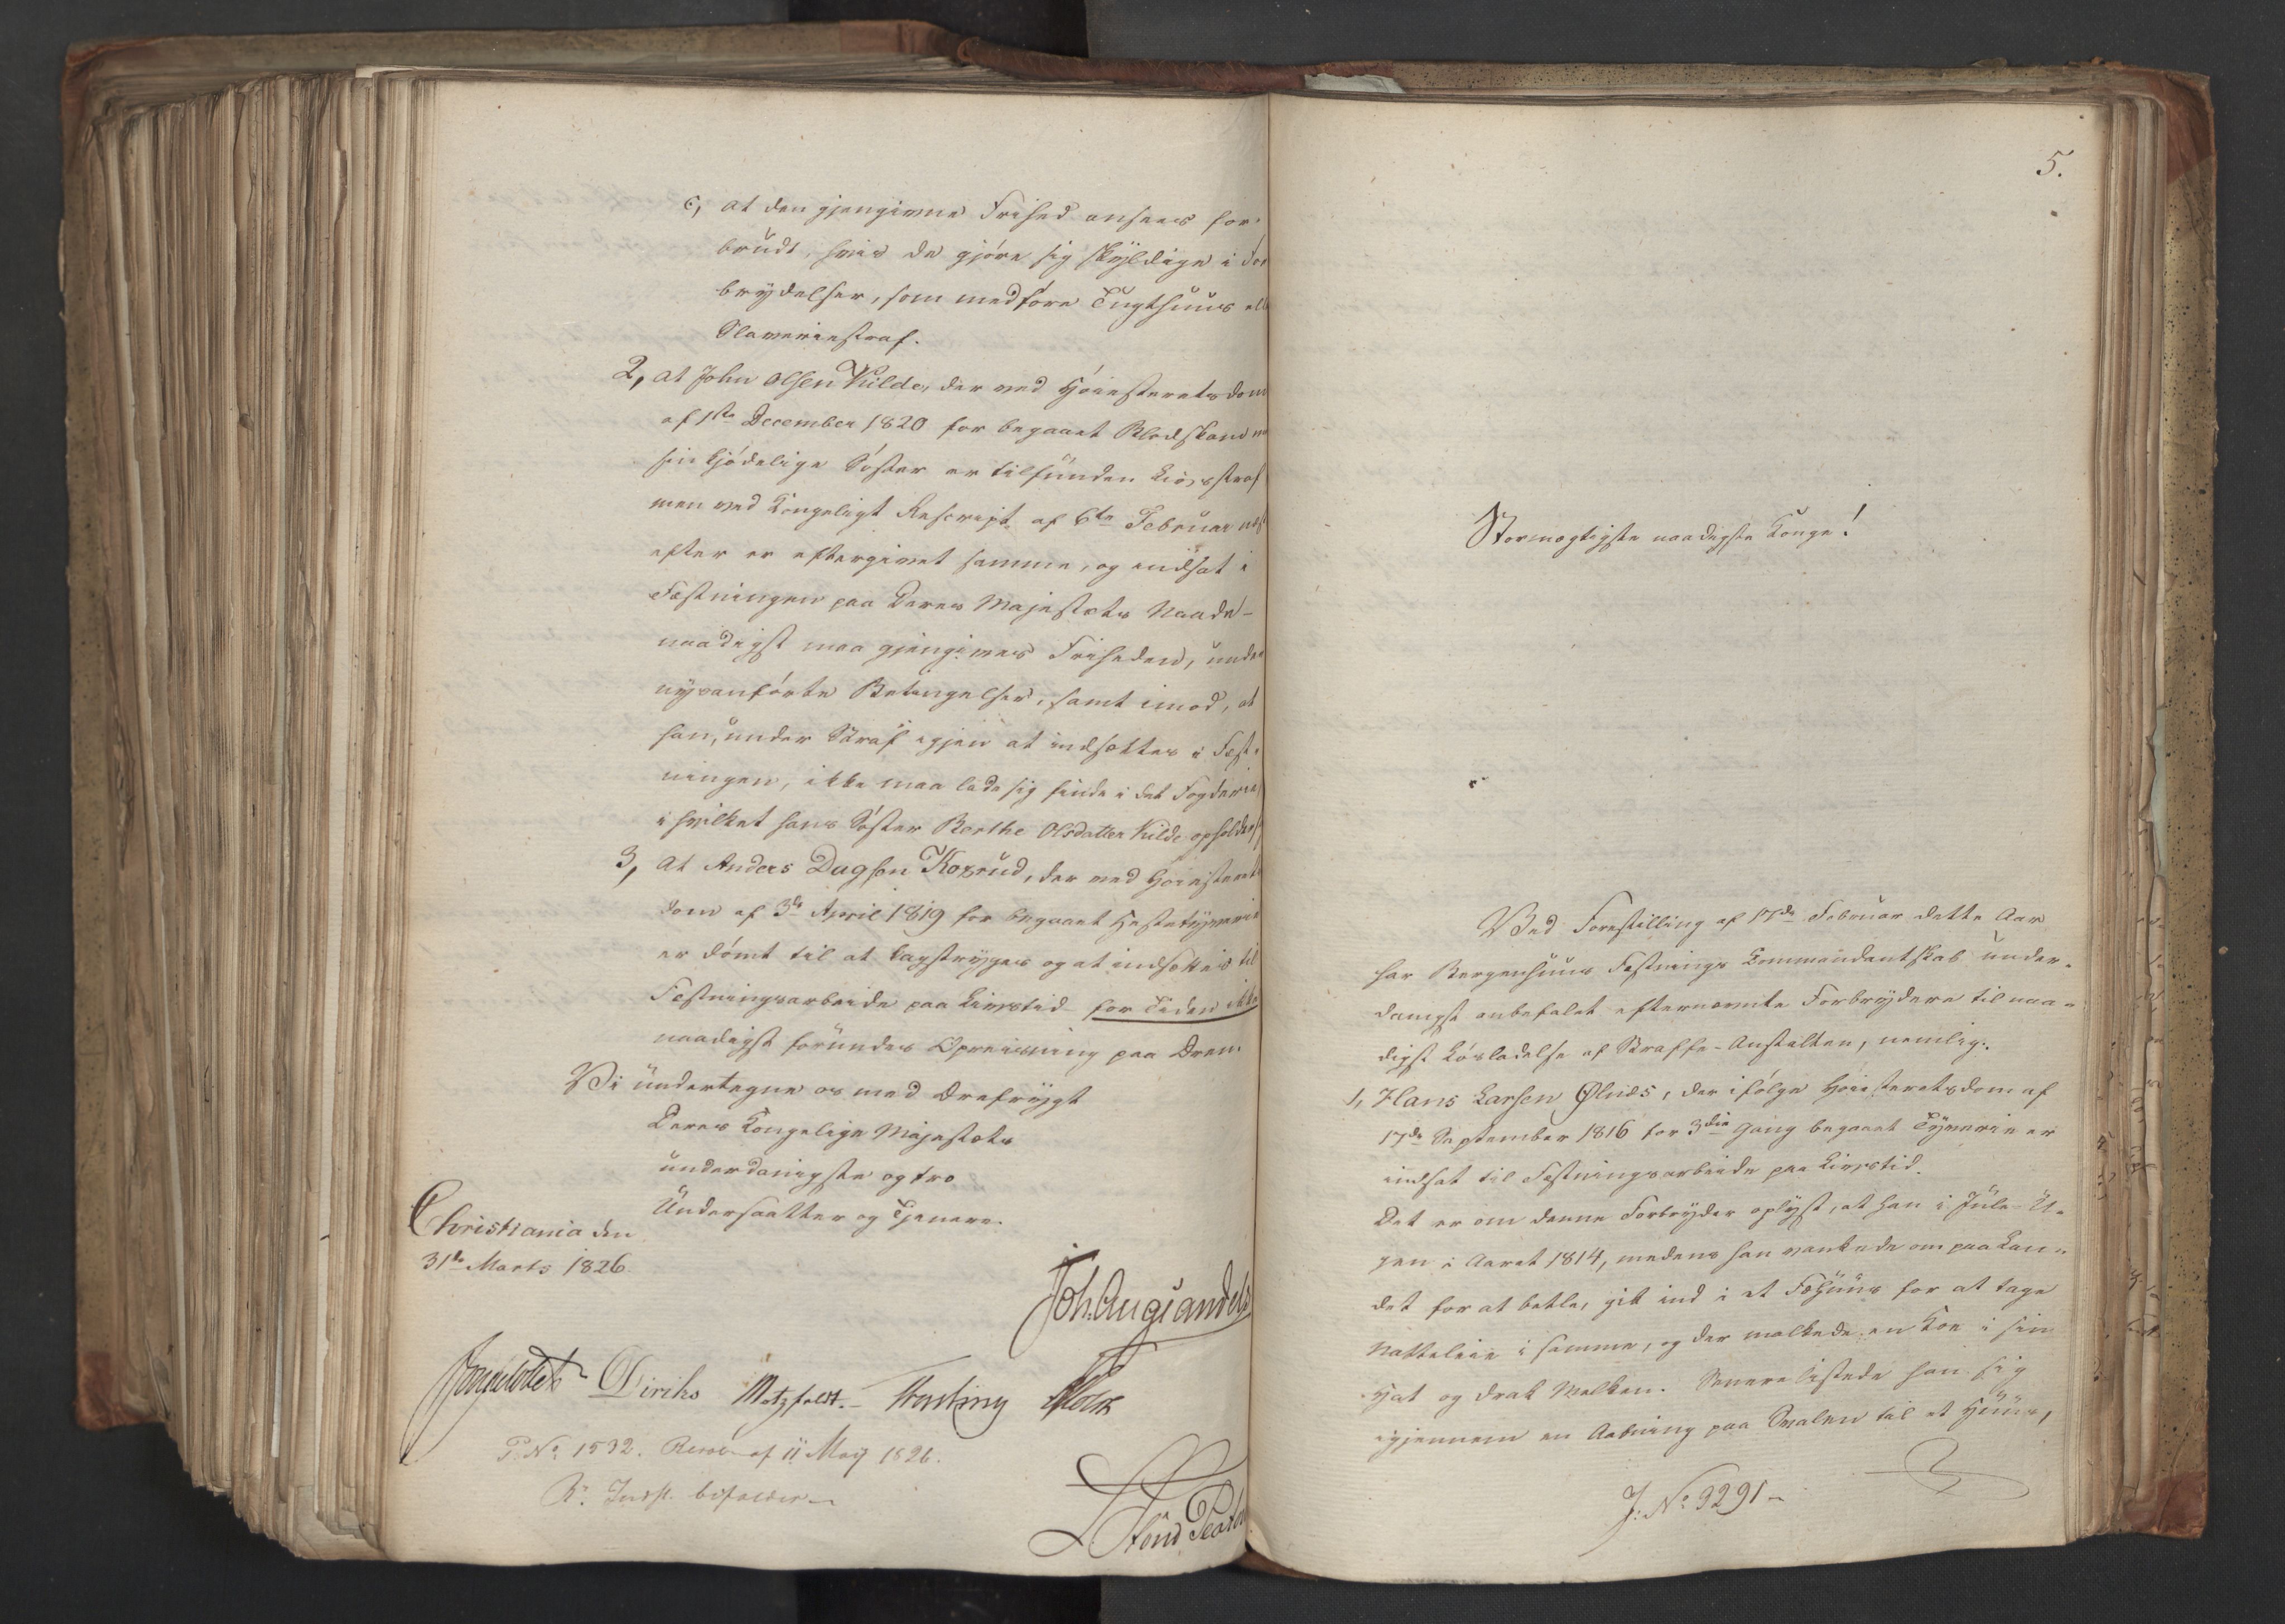 c, at den gjengivne Frihed ansees for-
brudt, hvis de gjøre sig skyldige i For
brydelser, som medføre Tugthuus ell
Slaveriestraf.
2, at John Olsen Kilde, der ved Høiesteretsdom
af 1ste December 1820 for begaaet Blodskam m
sin kjødelige Søster er tilfunden Livsstraf
men ved Kongeligt Rescript af 6te Februar næst
efter er eftergivet samme, og indsat i
Fæstningen paa Deres Majestæts Naade -
naadigst maa gjengives Friheden, under
nysanførte Betingelser, samt imod, at
han, under Straf igjen at indsættes i Fæst-
ningen, ikke maa lade sig finde i det Fogderie,
i hvilket hans Søster Berthe Olsdatter Kilde opholder sig
3, at Anders Dagsen Roxrud, der ved Høiesterets
dom af 3de April 1819 for begaaet Hestetyverie
er dømt til at kagstryges og at indsættes til
Fæstningsarbeide paa Livstid for Tiden ikke
naadigst forundes Opreisning paa Æren.
Vi undertegne os med Ærefrygt
Deres Kongelige Majestæts
underdanigste og tro
Undersaatter og Tjenere.
Christiania den
31de Marts 1826.
Joh. Aug Sandels
Diriks Motzfeldt. Fasting
P. No 1532. Resol. af 11 Maij 1826.
R. Indst. bifaldes
5.
Stormægtigste naadigste Konge!
Ved Forestilling af 17de Februar dette Aar
har Bergenhuus Fæstnings Commandantskab under-
danigst anbefalet efternævnte Forbrydere til naa-
digst Løsladelse af Straffe-Anstalten, nemlig:
1, Hans Larsen Ølnæs, der ifølge Høiesteretsdom af
17de September 1816 for 3die Gang begaaet Tyverie er
indsat til Fæstningsarbeide paa Livstid.
Det er om denne Forbryder oplyst, at han i Jule-U-
gen i Aaret 1814, medens han vankede om paa Lan-
det for at betle, gik ind i et Fæhuus for at tage
Natteleie i samme, og der malkede en Koe i sin
Hat og drak Melken. Senere listede han sig
igjennem en Aabning paa Svalen til et Huus,
J: No 3291